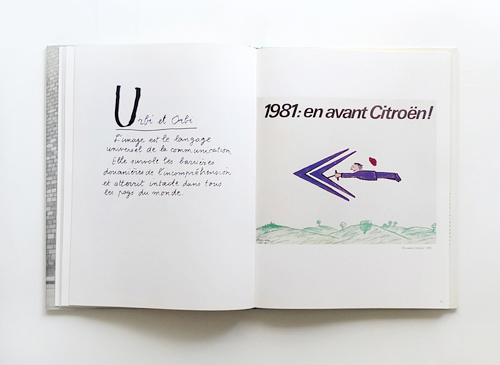 Urbi et Orbi
L'image est le langage
universel de la communication.
Elle survole les barrières
douanières de l'incompréhension
et atterrit intacte dans tous
les pays du monde.
1981: en avant Citroën!